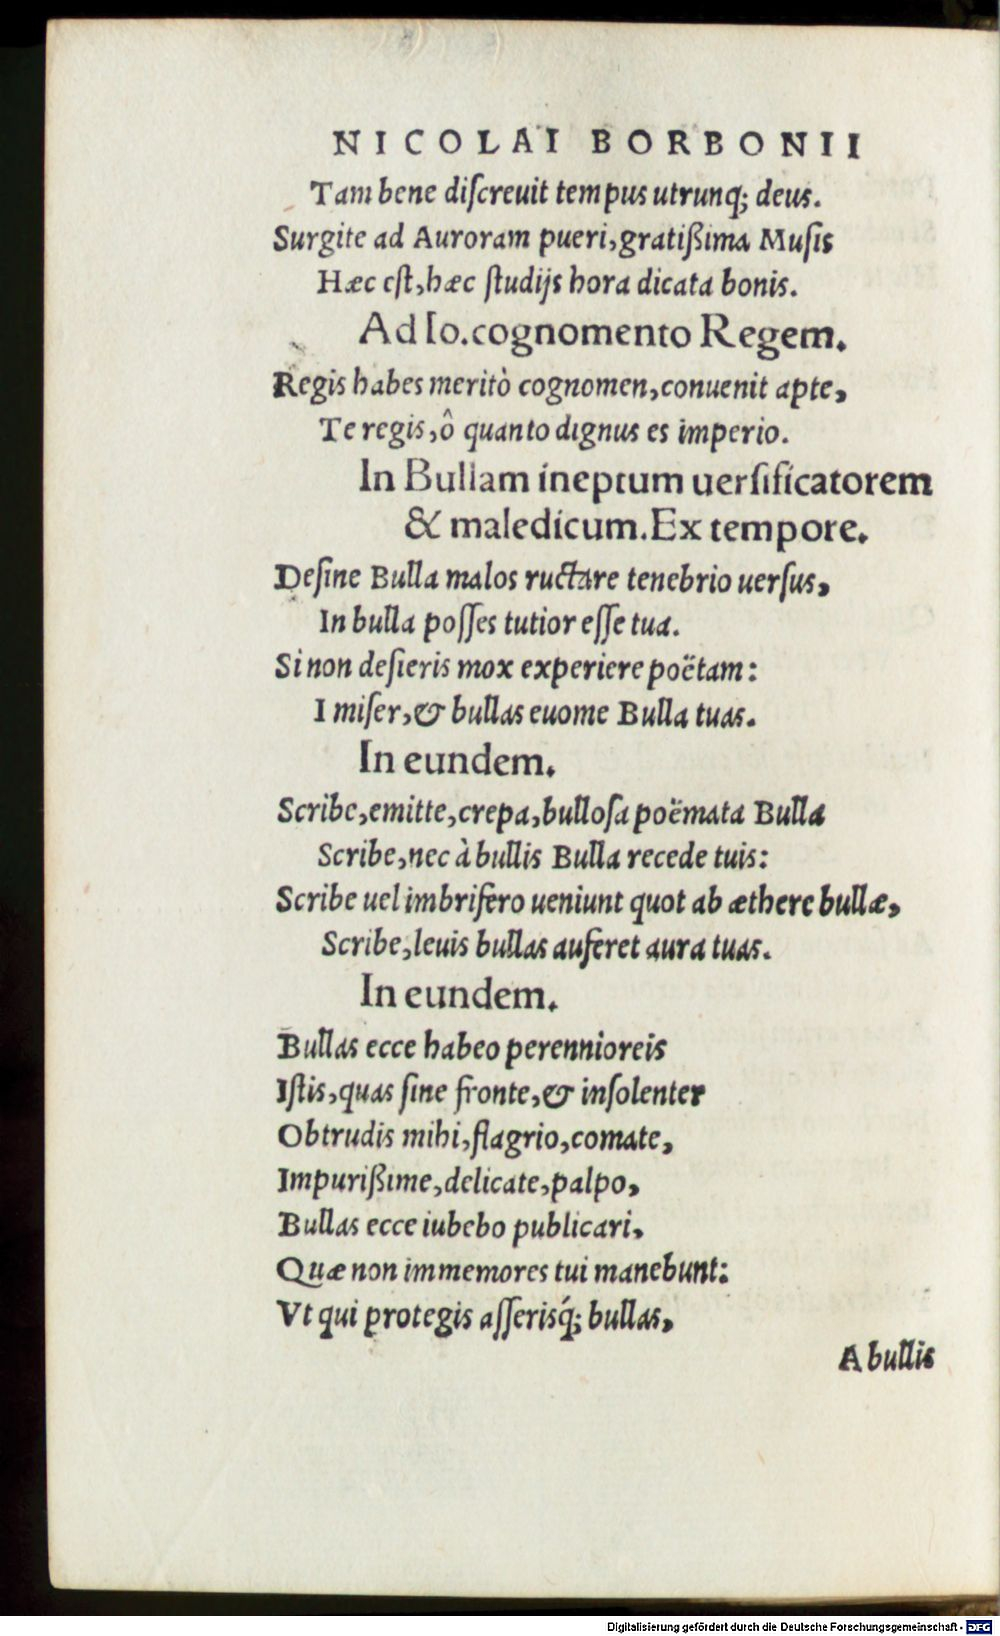 NICOLAI BORBONII
Tam bene diſcreuit tempus utrunq; deus.
Surgite ad Auroram pueri, gratißima Muſis
Hæc eſt, hæc ſtudijs hora dicata bonis.
Ad Io. cognomento Regem.
Regis habes meritò cognomen, conuenit apte,
Te regis, ô quanto dignus es imperio.
In Bullam ineptum uerſificatorem
& maledicum. Ex tempore.
Deſine Bulla malos ructare tenebrio uerſus,
In bulla poſſes tutior eſſe tua.
Si non deſieris mox experiere poëtam:
I miſer, & bullas euome Bulla tuas.
In eundem.
Scribe, emitte, crepa, bulloſa poëmata Bulla
Scribe, nec à bullis Bulla recede tuis:
Scribe uel imbrifero ueniunt quot ab æthere bullæ,
Scribe, leuis bullas auferet aura tuas.
In eundem.
Bullas ecce habeo perennioreis
Iſtis, quas ſine fronte, & inſolenter
Obtrudis mihi, flagrio, comate,
Impurißime, delicate, palpo,
Bullas ecce iubebo publicari,
Quæ non immemores tui manebunt:
Vt qui protegis aſſerisq́; bullas,
A bullis
Digitalisierung gefördert durch die Deutsche Forschungsgemeinschaft - DFG